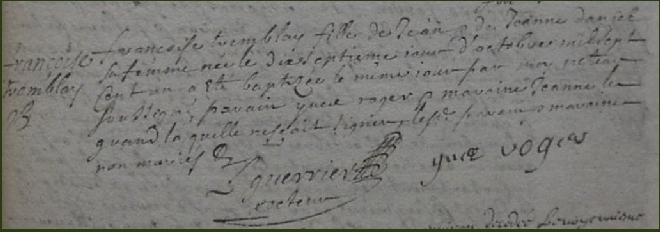 françoise
tremblay
B
françoise tremblay fille de Jean & de Jeanne daniel
sa femme née le dixseptieme jour d'octobre mil sept
cent un a eté baptizée le meme jour par moy recteur
soussegné parain yuee roger & maraine Jeanne le
quand la quelle ne sçait signer lesd. parain & maraine
non mariés
guerrier yuee roger
recteur